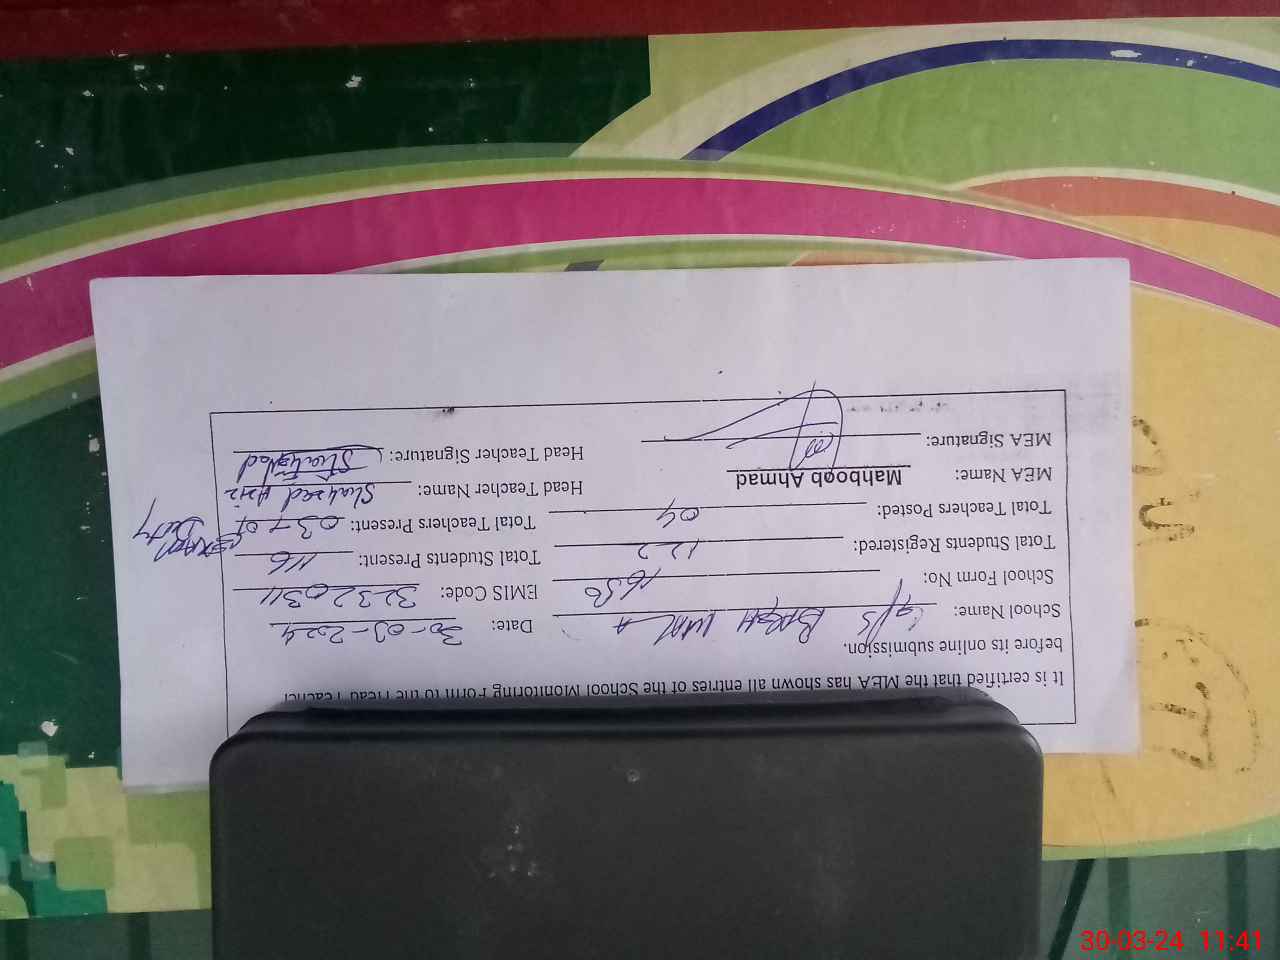 It is certified that the MEA has shown all entries of the School Monitoring Form to the Head Teacher
before its online submission.
School Name: G/PS BAGH WALA Date: 30-03-2024
School Form No: 1650 EMIS Code: 32320311
Total Students Registered: 122 Total Students Present: 116
Total Teachers Posted: 04 Total Teachers Present: 03+01 Exam Duty
MEA Name: Mahboob Ahmad Head Teacher Name: Shahzad Aziz
MEA Signature: Head Teacher Signature:
30-03-24 11:41